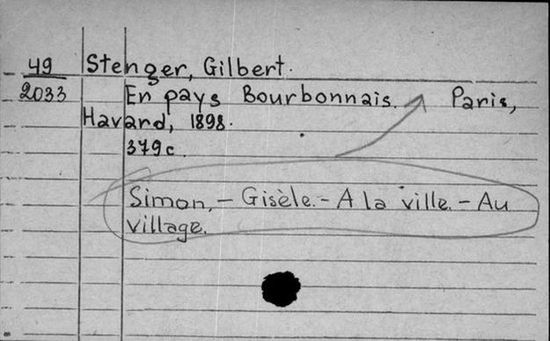 49 Stenger, Gilbert.
2033 En pays Bourbonnais. Paris,
Havard, 1898.
379c.
Simon. - Gisèle. - A la ville. - Au
village.